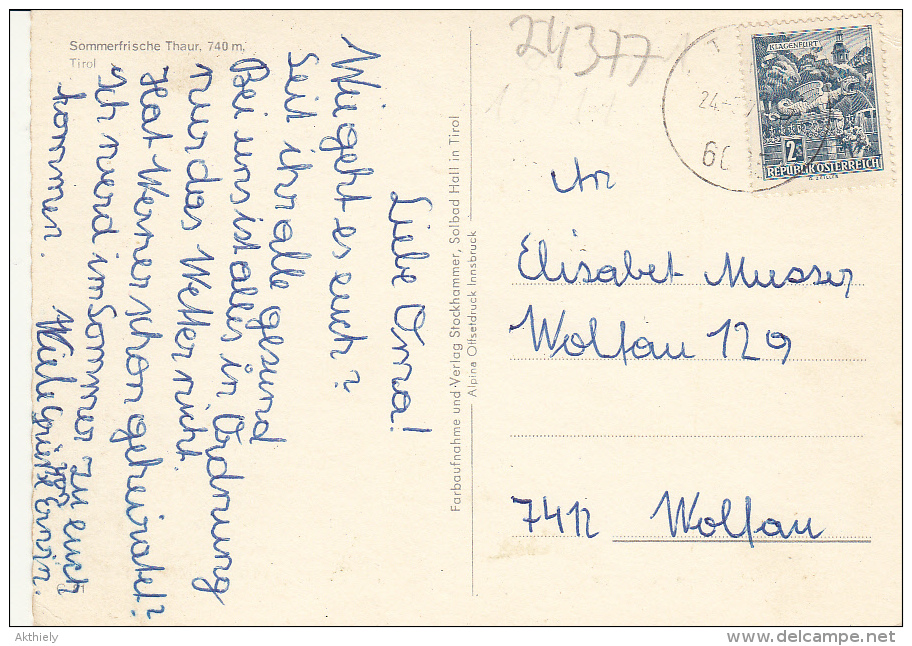 Sommerfrische Thaur, 740 m,
Tirol
24377
Liebe Oma!
Wie geht es euch?
Seit ihr alle gesund
Bei uns ist alles in Ordnung
nur das Wetter nicht.
Hat Werner schon geheiratet?
Ich werd im Sommer zu euch
kommen.
Viele Grüße
von Erwin.
Farbaufnahme und -Verlag Stockhammer, Solbad Hall in Tirol
Alpina Offsetdruck Innsbruck
KLAGENFURT
2S
REPUBLIK ÖSTERREICH
T
24.-
60
An
Elisabet Musser
Wolfau 129
7412 Wolfau
Akthiely
www.delcampe.net